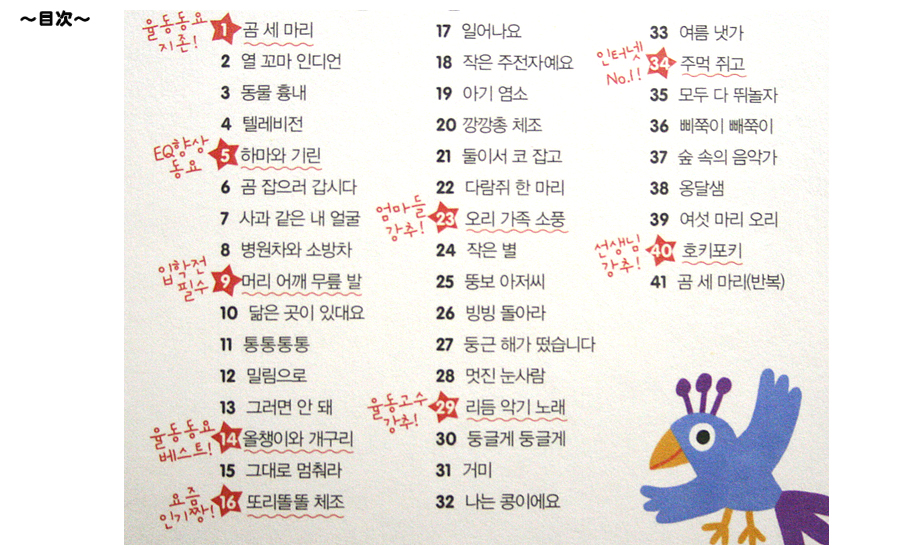 ～目次～
율동동요
지존!
1 곰 세 마리
2 열 꼬마 인디언
3 동물 흉내
4 텔레비전
EQ향상
동요
5 하마와 기린
6 곰 잡으러 갑시다
7 사과 같은 내 얼굴
8 병원차와 소방차
입학전
필수
9 머리 어깨 무릎 발
10 닮은 곳이 있대요
11 통통통통
12 밀림으로
13 그러면 안 돼
율동동요
베스트!
14 올챙이와 개구리
15 그대로 멈춰라
요즘
인기짱!
16 또리똘똘 체조
17 일어나요
18 작은 주전자예요
19 아기 염소
20 깡깡총 체조
21 둘이서 코 잡고
22 다람쥐 한 마리
엄마들
강추!
23 오리 가족 소풍
24 작은 별
25 뚱보 아저씨
26 빙빙 돌아라
27 둥근 해가 떴습니다
28 멋진 눈사람
율동고수
강추!
29 리듬 악기 노래
30 둥글게 둥글게
31 거미
32 나는 콩이에요
33 여름 냇가
인터넷
No.1!
34 주먹 쥐고
35 모두 다 뛰놀자
36 삐쭉이 빼쭉이
37 숲 속의 음악가
38 옹달샘
39 여섯 마리 오리
선생님
강추!
40 호키포키
41 곰 세 마리(반복)